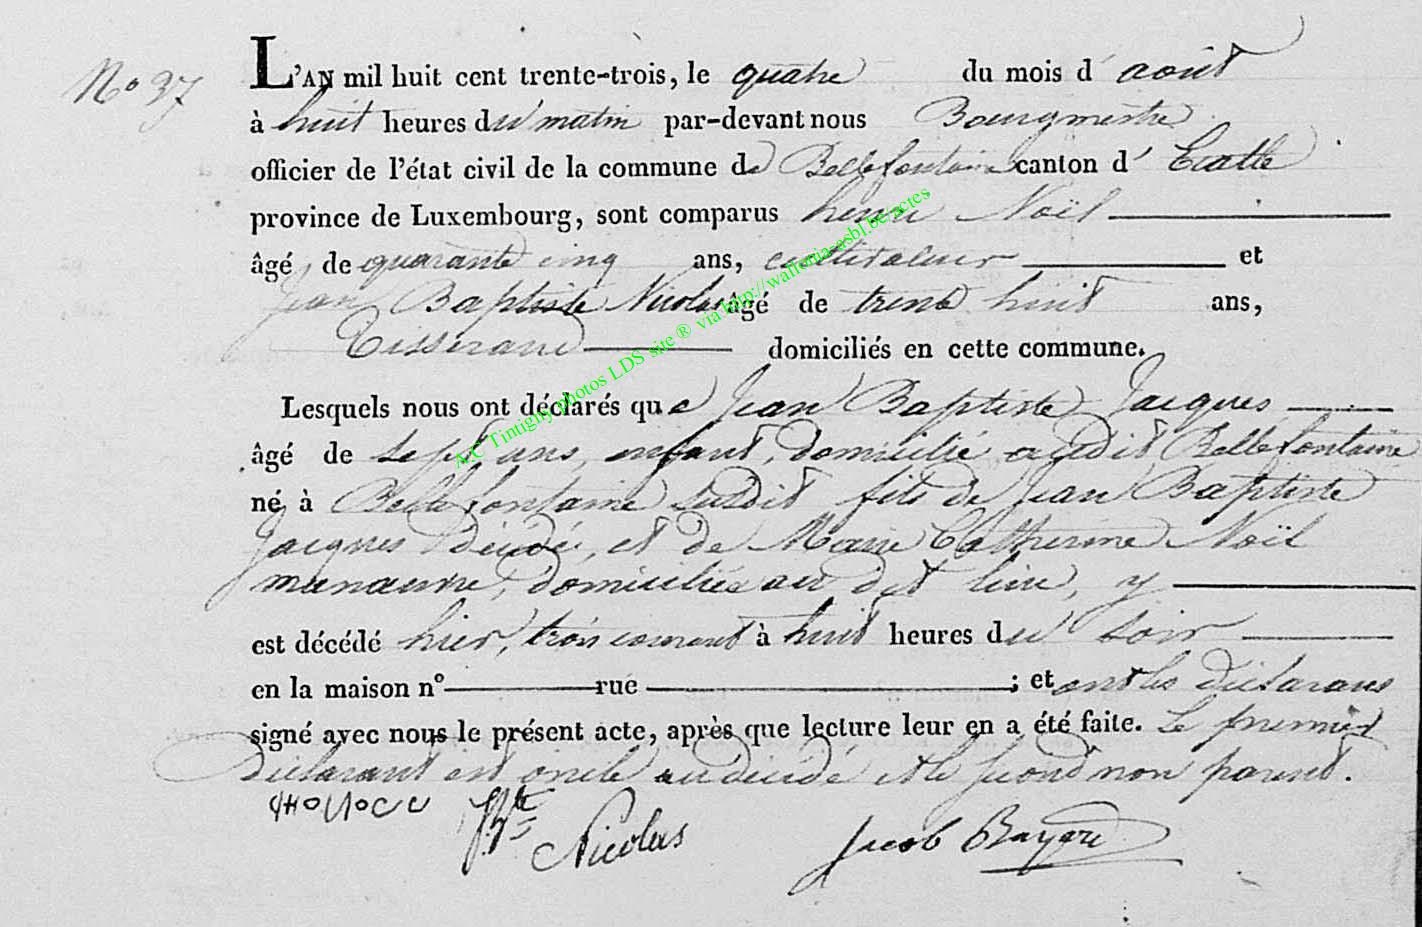 No 37
L'AN mil huit cent trente-trois, le quatre du mois d'août
à huit heures du matin par-devant nous Bourgmestre
officier de l'état civil de la commune de Bellefontaine canton d'Etalle
province de Luxembourg, sont comparus henri Noël
âgé de quarante cinq ans, cultivateur et
Jean Baptiste Nicolas âgé de trente huit ans,
Tisserand domiciliés en cette commune.
Lesquels nous ont déclarés que Jean Baptiste Jacques
âgé de sept ans, enfant, domicilié audit Bellefontaine
né à Bellefontaine susdit fils de Jean Baptiste
Jacques décédé, et de Marie Catherine Noël
domiciliée au dit lieu, y
est décédé hier, trois courant à huit heures du soir
en la maison nº rue ; et ont les déclarans
signé avec nous le présent acte, après que lecture leur en a été faite. Le premier
déclarant est oncle au décédé et le second non parent.
JBte Nicolas Jacob
A.C Tintigny photos LDS site ® via http://wallonia-asbl.be/actes